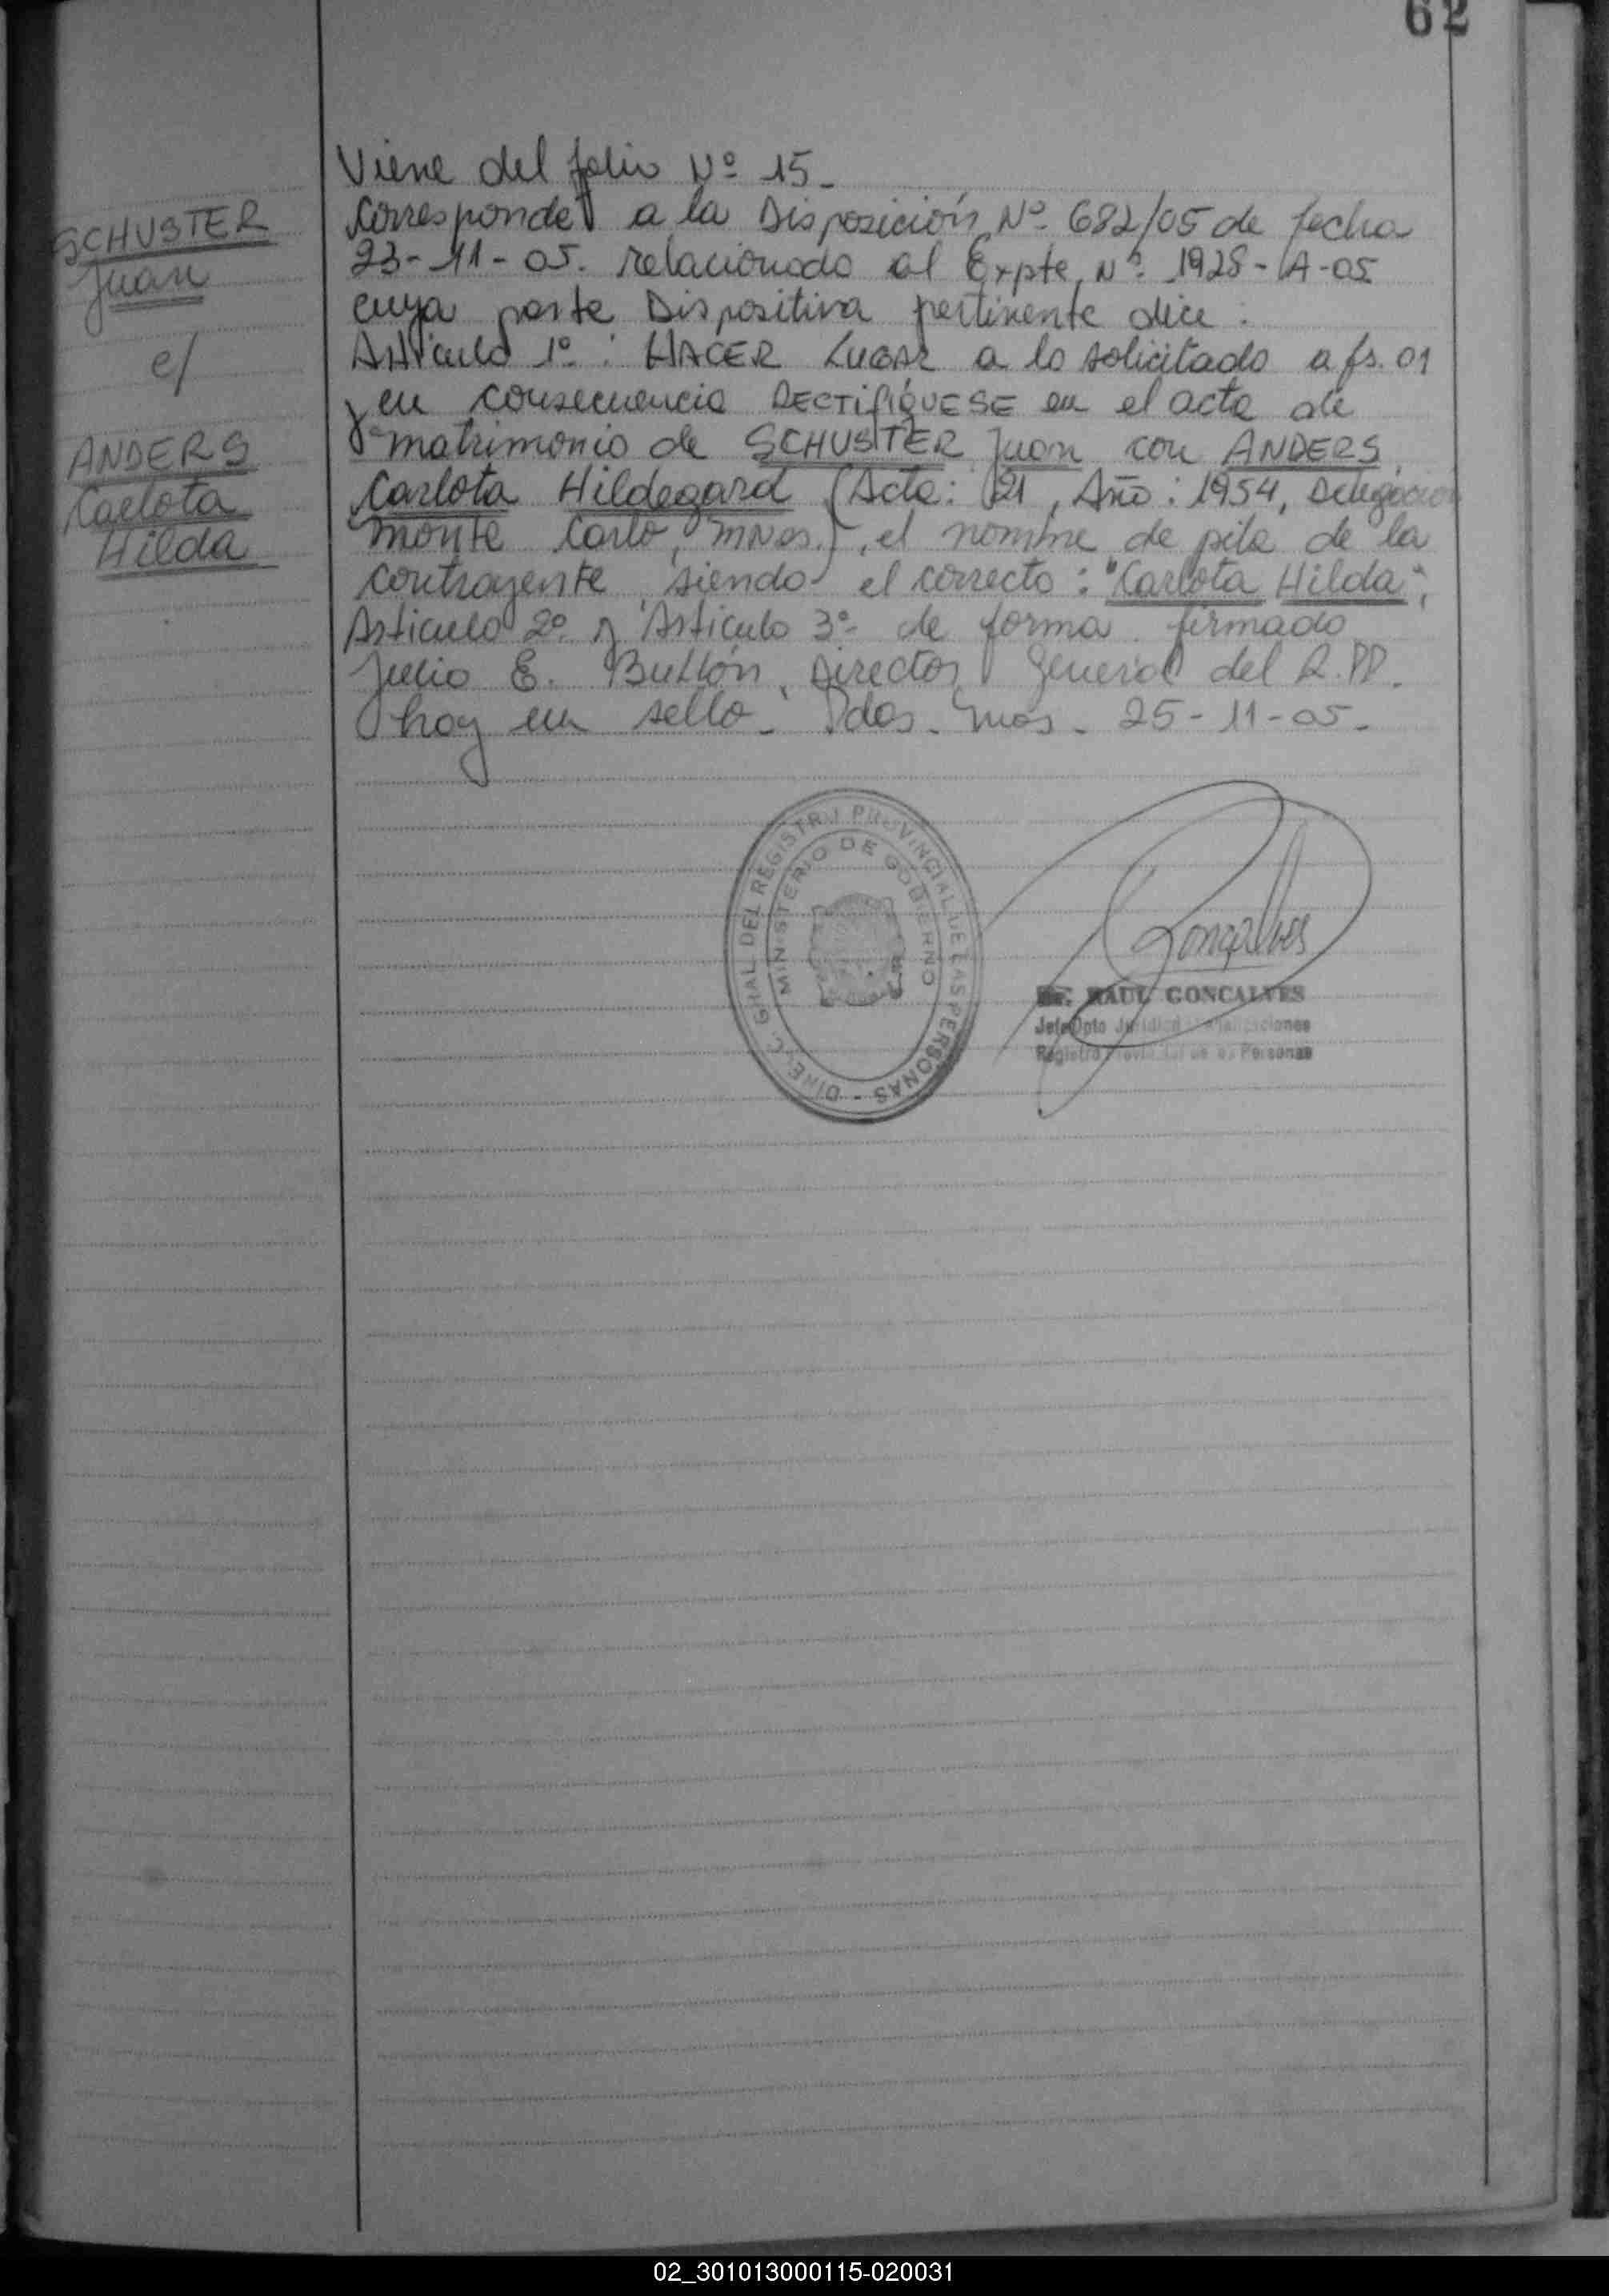 62
SCHUSTER
Juan
c/
ANDERS
Carlota
Hilda
Viene del folio Nº 15-
Corresponde a la Disposición Nº 682/05 de fecha
23-11-05. relacionado al Expte. Nº 1928-A-05
cuya parte Dispositiva pertinente dice:
Artículo 1º: HACER LUGAR a lo solicitado a fs. 01
y en consecuencia RECTIFÍQUESE en el acta de
matrimonio de SCHUSTER Juan con ANDERS
Carlota Hildegard (Acta: 21, Año: 1954, Delegación
Monte Carlo, Mnes.), el nombre de pila de la
contrayente, siendo el correcto: "Carlota Hilda";
Artículo 2º y Artículo 3º de forma. firmado
Julio E. Director General del R.PP.
hay un sello. Pdas. Mnes. 25-11-05-
DIREC. GRAL. DEL REGISTRO PROVINCIAL DE LAS PERSONAS -
MINISTERIO DE GOBIERNO
Goncalves
Dr. RAUL GONCALVES
Jefe Dpto
Registro Personas
02_301013000115-020031